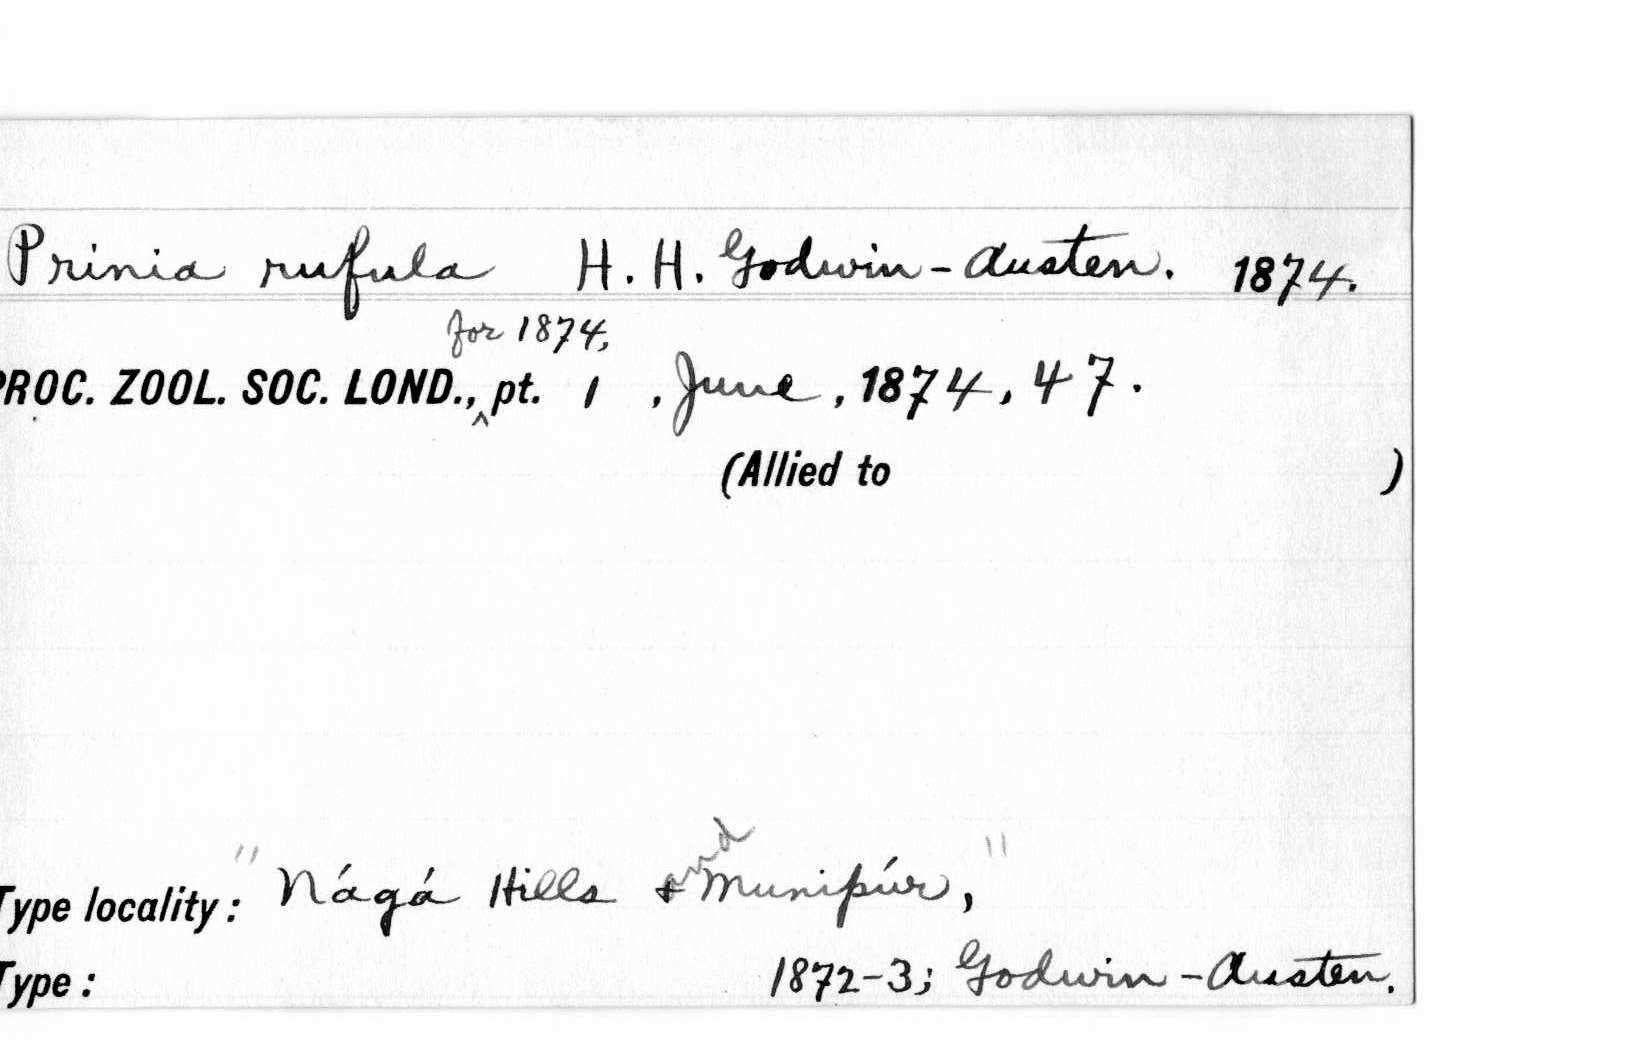 Prinia rufula H. H. Godwin-Austen. 1874.
for 1874,
PROC. ZOOL. SOC. LOND., ^ pt. 1, June, 1874, 47.
(Allied to )
Type locality: "Nágá Hills & and Munipúr,"
Type: 1872-3; Godwin-Austen.